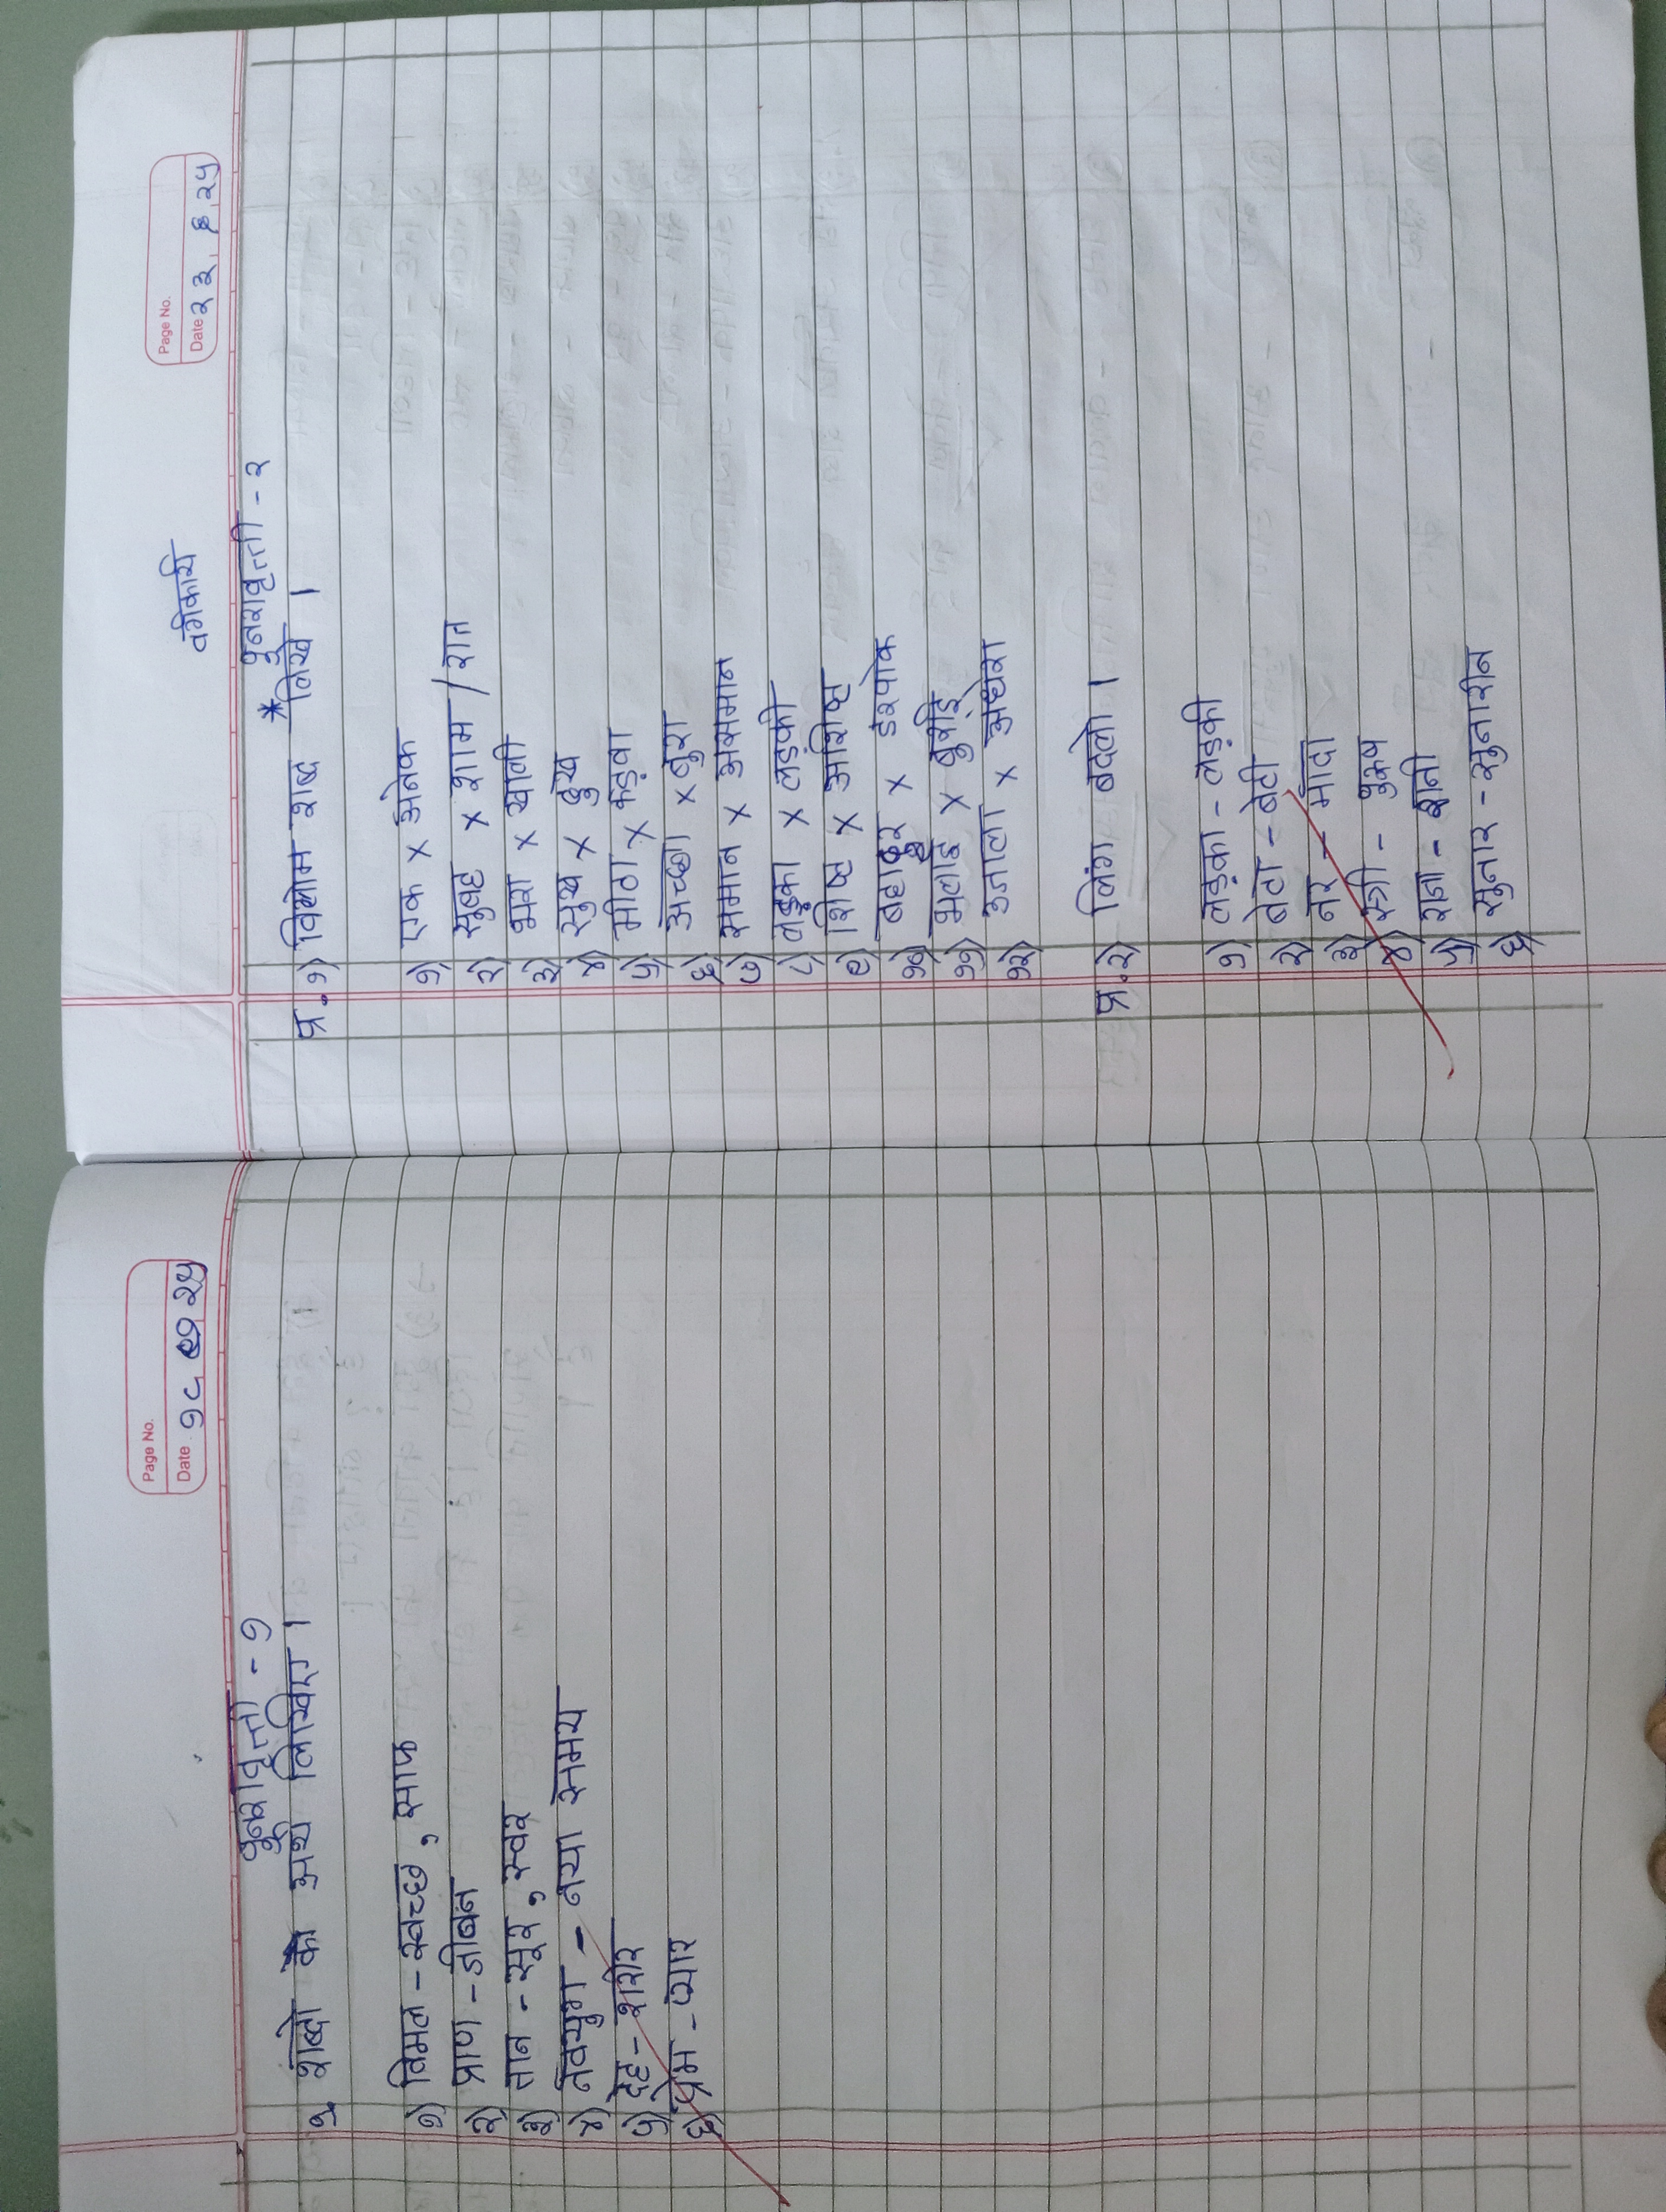 Page No.
Date १८ ७ २५
पुनरावृत्ती - १
१ शब्दो के अथ लिखिए ।
१) विमल - स्वच्छ , साफ
२) प्राण - जीवन
३) तान - सूर , स्वर
४) नवयुग - नया समय
५) देह - शरीर
६) प्रेम - प्यार
वर्गकार्य
Page No.
Date २३ . ८ . २५
पुनरावृत्ती - २
प्र. १) विलोम शब्द * लिखे ।
१) एक × अनेक
२) सुबह × शाम / रात
३) भरा × खाली
४) सुख × दुख
५) मीठा × कड़वा
६) अच्छा × बुरा
७) समान × असमान
८) लड़का × लड़की
९) शिष्ट × अशिष्ट
१०) बहादूर × डरपोक
११) भलाई × बुराई
१२) उजाला × अंधेरा
प्र. २) लिंग बदलो ।
१) लड़का - लड़की
२) बेटा - बेटी
३) नर - मादा
४) स्त्री - पुरूष
५) राजा - रानी
६) सुनार - सुनारीन